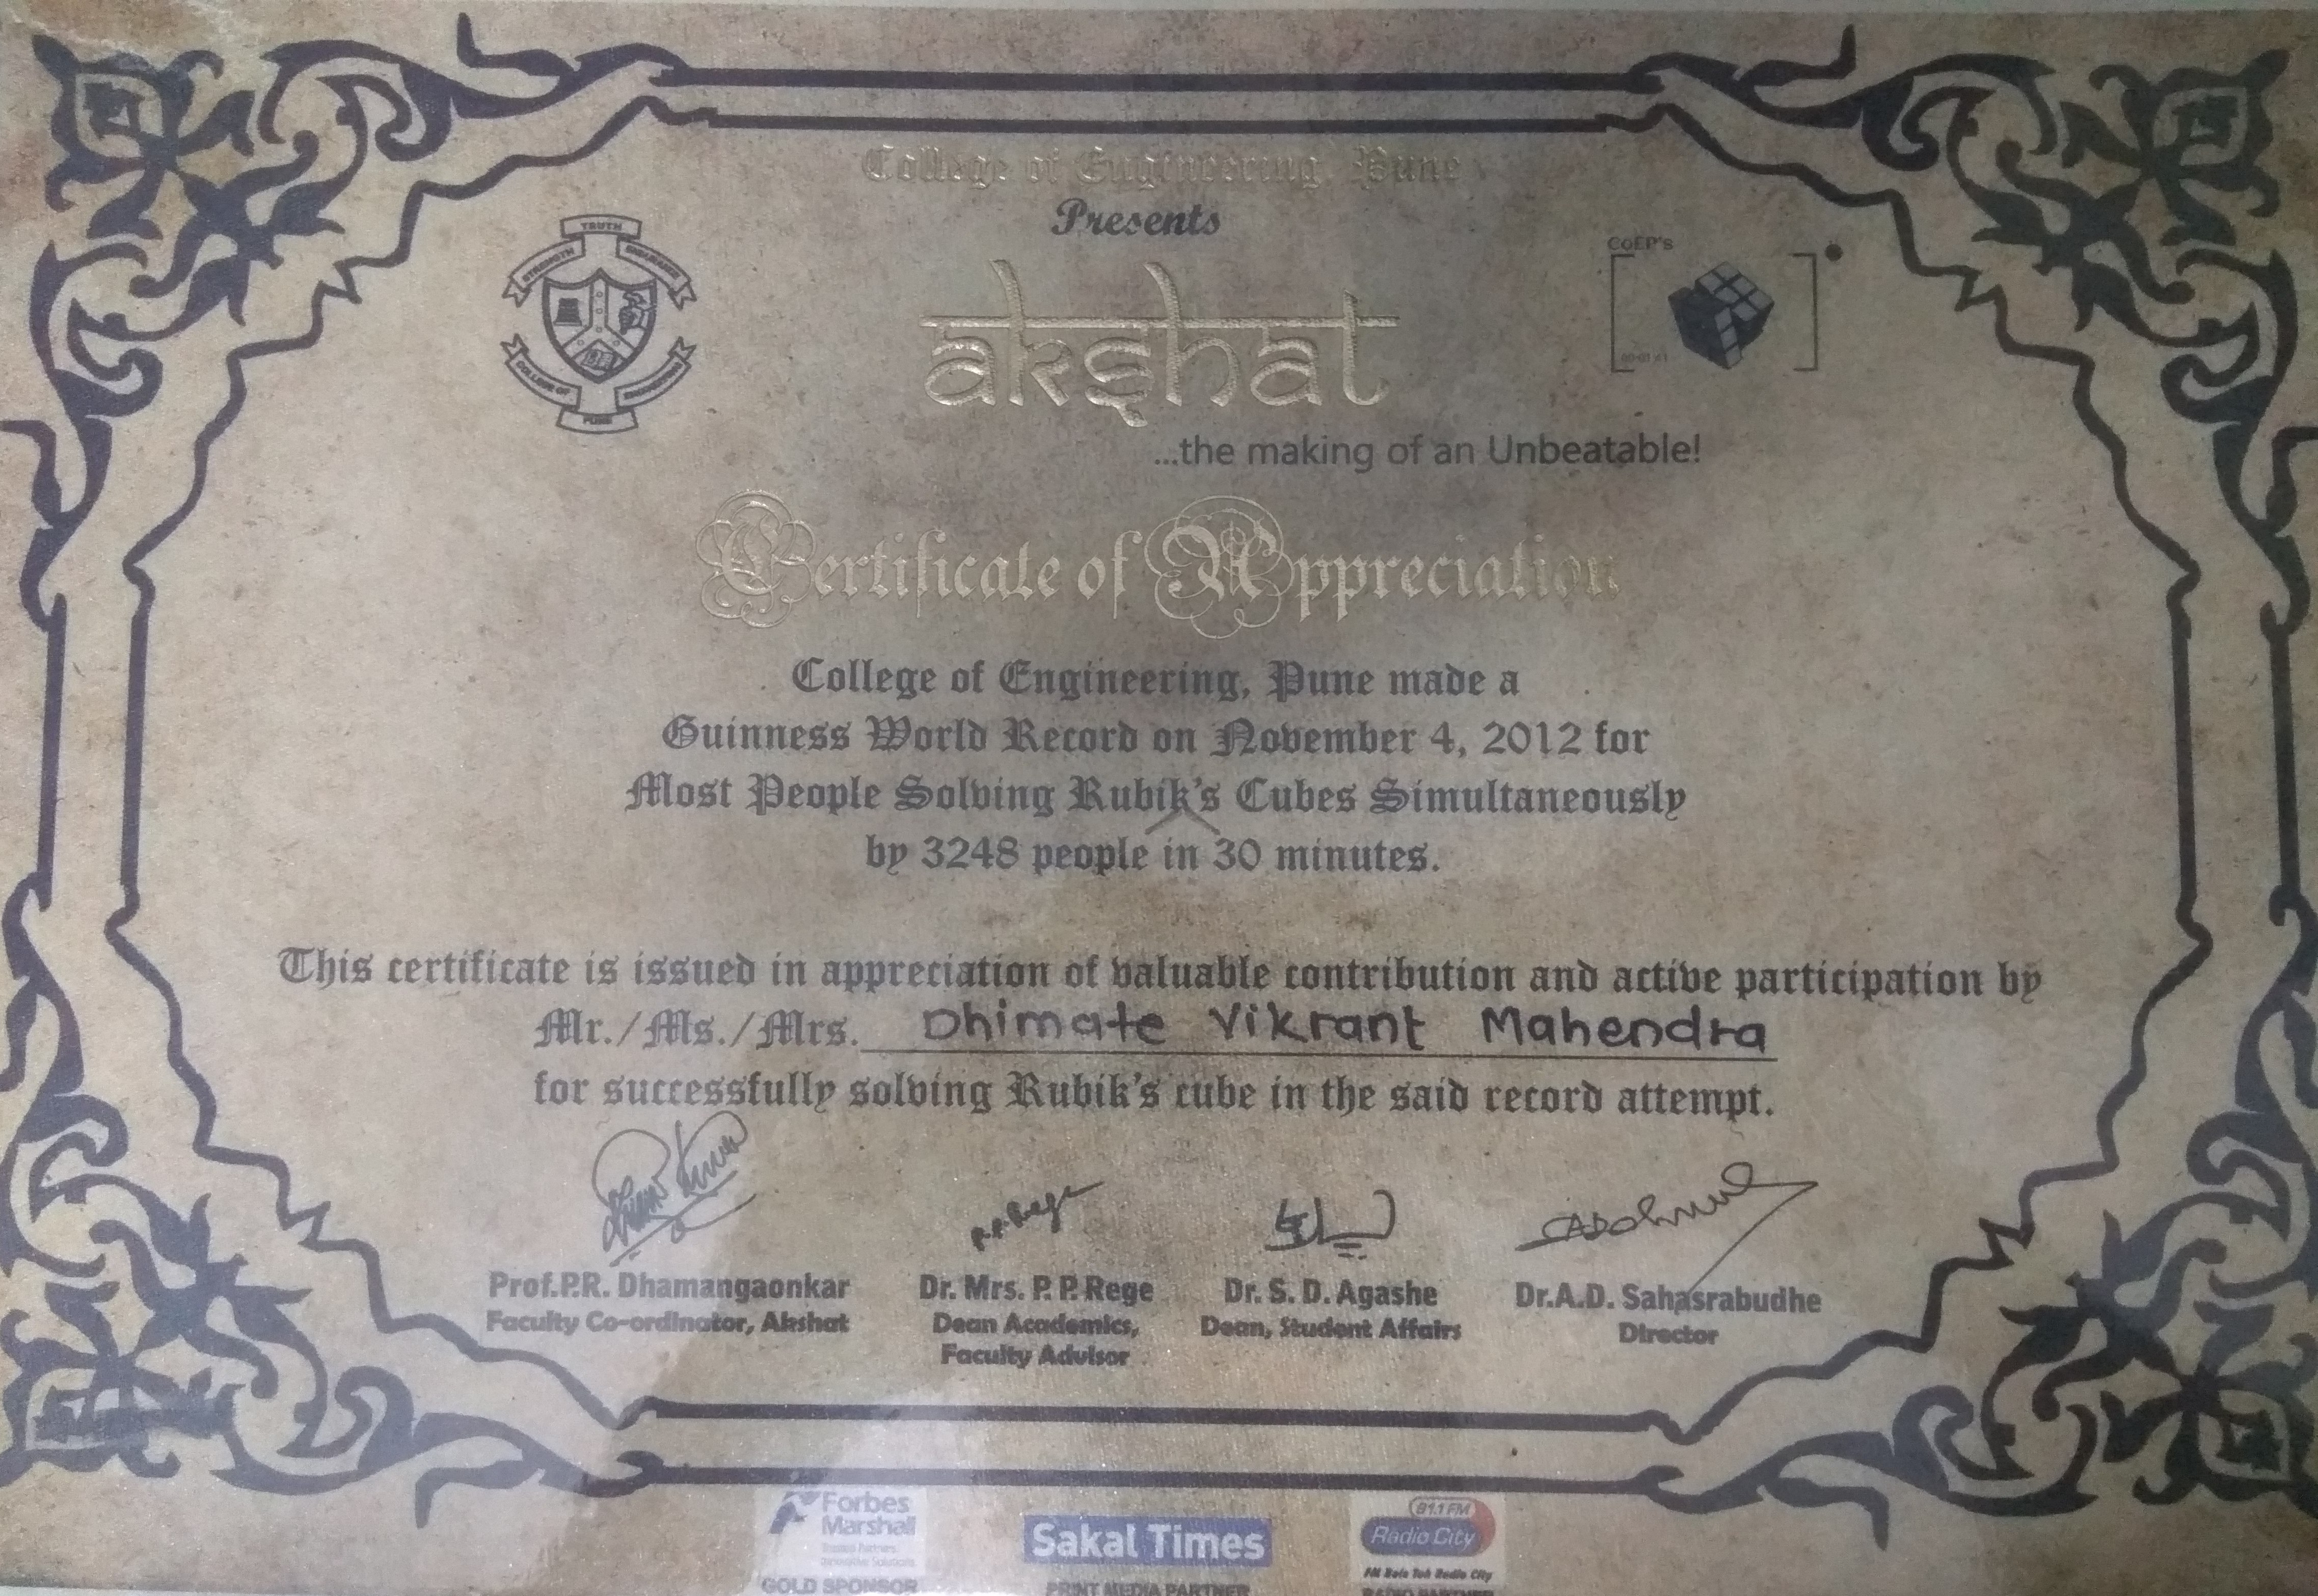 College of Engineering, Pune
Presents
TRUTH
STRENGTH
ENDURANCE
COLLEGE OF
ENGINEERING
PUNE
CoEP's
akshat
...the making of an Unbeatable!
Certificate of Appreciation
College of Engineering, Pune made a
Guinness World Record on November 4, 2012 for
Most People Solving Rubik's Cubes Simultaneously
by 3248 people in 30 minutes.
This certificate is issued in appreciation of valuable contribution and active participation by
Mr./Ms./Mrs. Dhimate Vikrant Mahendra
for successfully solving Rubik's cube in the said record attempt.
P.P. Rege
Prof.P.R. Dhamangaonkar
Faculty Co-ordinator, Akshat
Dr. Mrs. P. P. Rege
Dean Academics,
Faculty Advisor
Dr. S. D. Agashe
Dean, Student Affairs
Dr.A.D. Sahasrabudhe
Director
Forbes
Marshall
Trusted Partners.
Innovative Solutions.
GOLD SPONSOR
Sakal Times
PRINT MEDIA PARTNER
91.1 FM
Radio City
FM Bole Toh Radio City
RADIO PARTNER